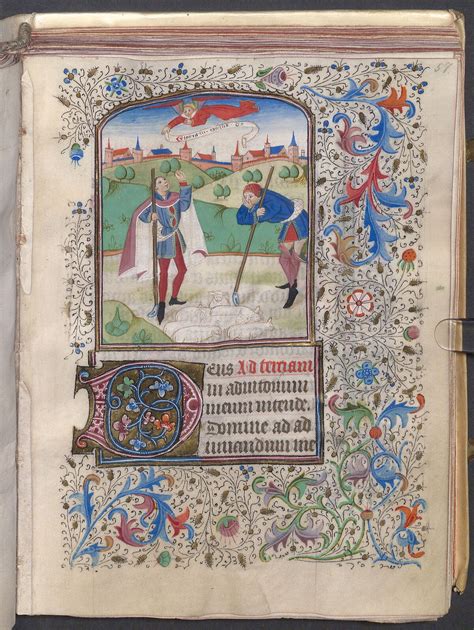 Gloria in excelsis
Deus Ad tertiam
in adiutorium
meum intende.
Domine ad ad
iuuandum me